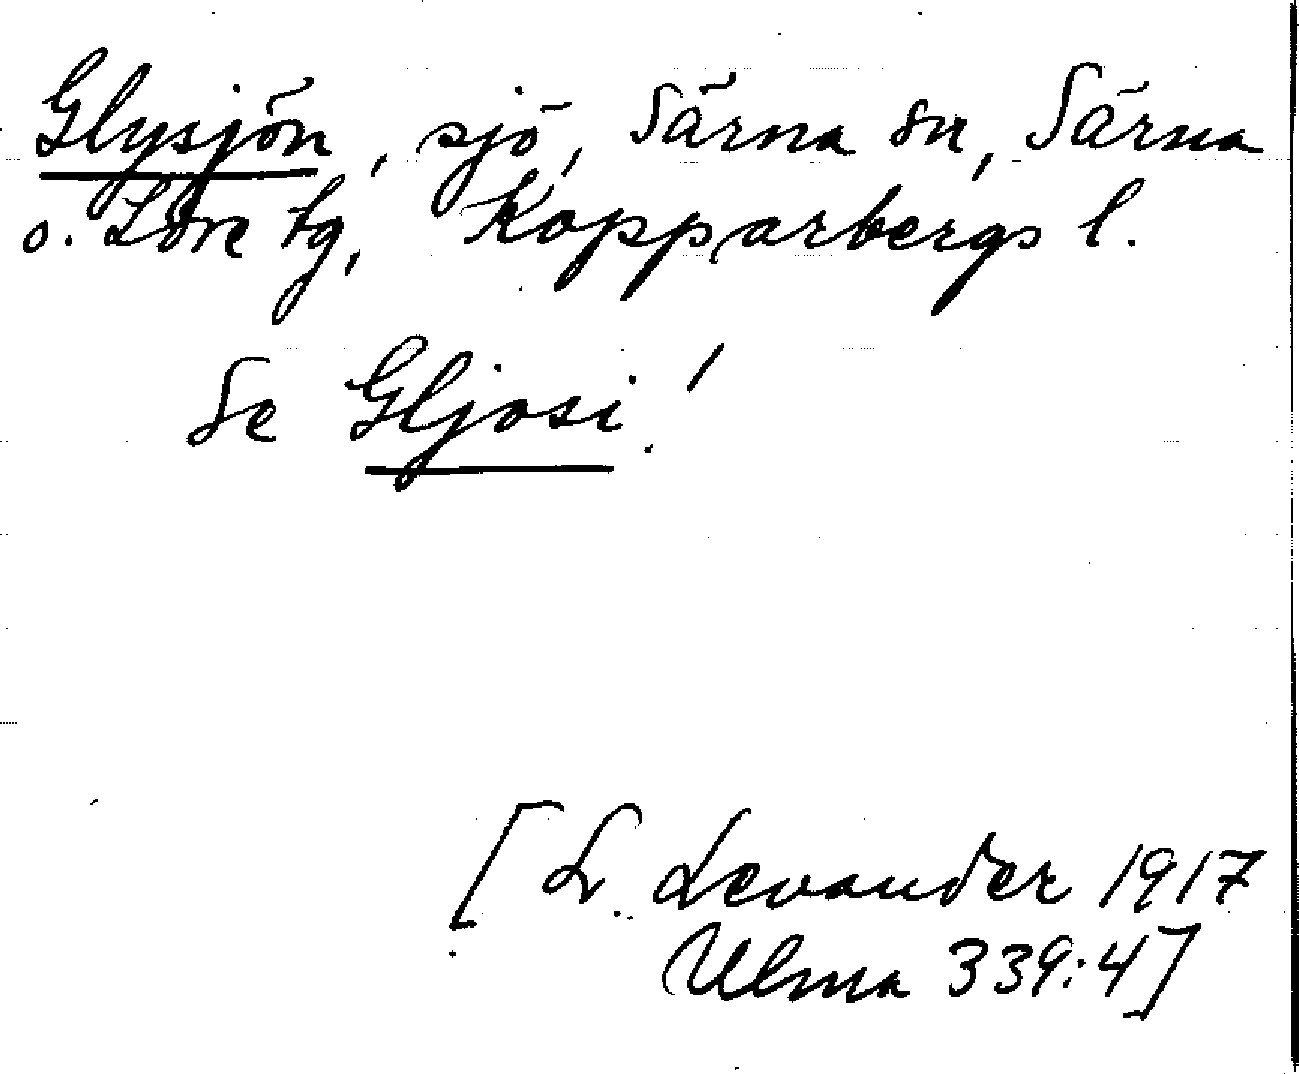 Glysjön, sjö, Särna sn, Särna
o. Idre tg, Kopparbergs l.
Se Gljosi!
[L. Levander 1917
Ulma 339:4]